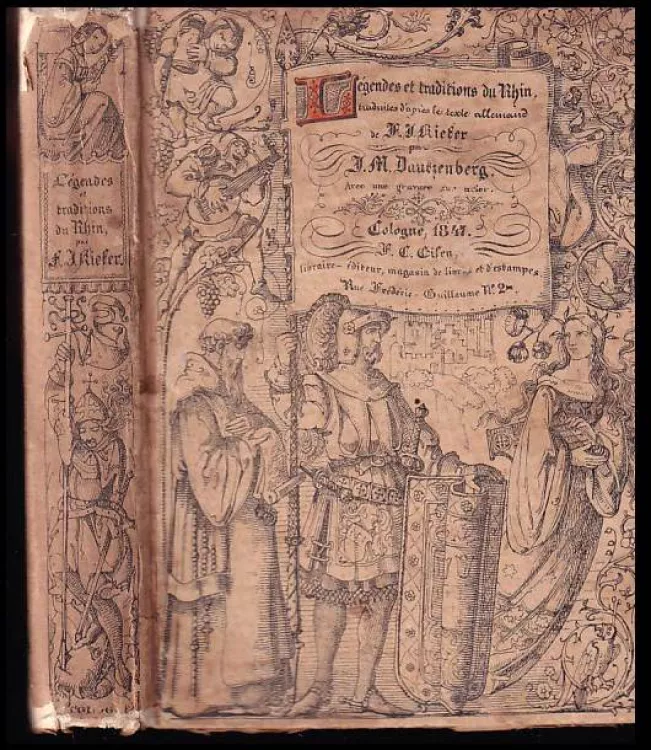 Légendes
et
traditions
du Rhin,
par
F. J. Kiefer.
Légendes et traditions du Rhin,
traduites d'après le texte allemand
de F. J. Kiefer
par
J. M. Dautzenberg.
Avec une gravure sur acier.
Cologne, 1847.
F. C. Eisen,
libraire-éditeur, magasin de livres et d'estampes,
Rue Frédéric-Guillaume Nº 2